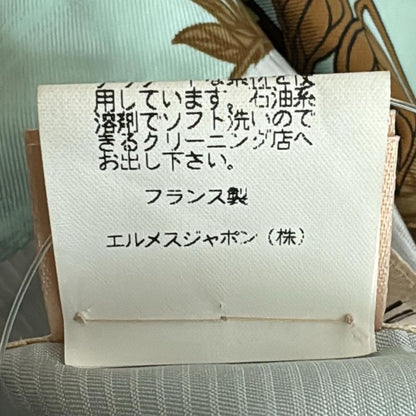 用しています。石油系
溶剤でソフト洗いので
きるクリーニング店へ
お出し下さい。
フランス製
エルメスジャポン（株）